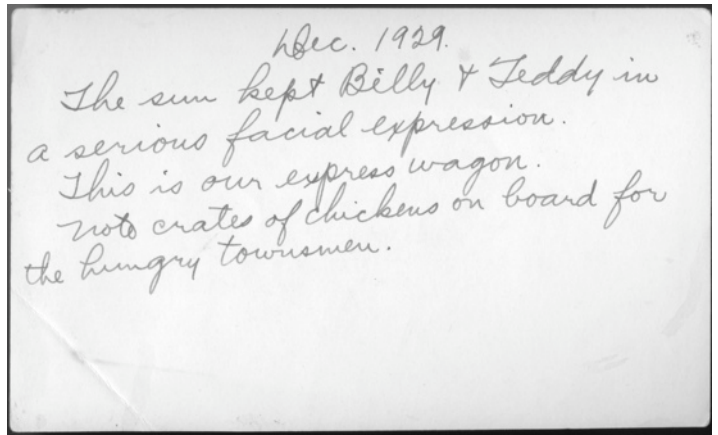 Dec. 1929.
The sun kept Billy & Teddy in
a serious facial expression.
This is our express wagon.
Note crates of chickens on board for
the hungry townsmen.